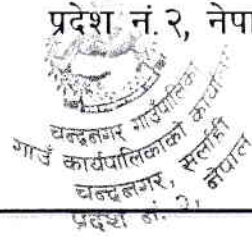 प्रदेश नं. २, नेपा
चन्द्रनगर गाउँपालिका
गाउँ कार्यपालिकाको कार्या
चन्द्रनगर, सर्लाही
प्रदेश नं. २, नेपाल